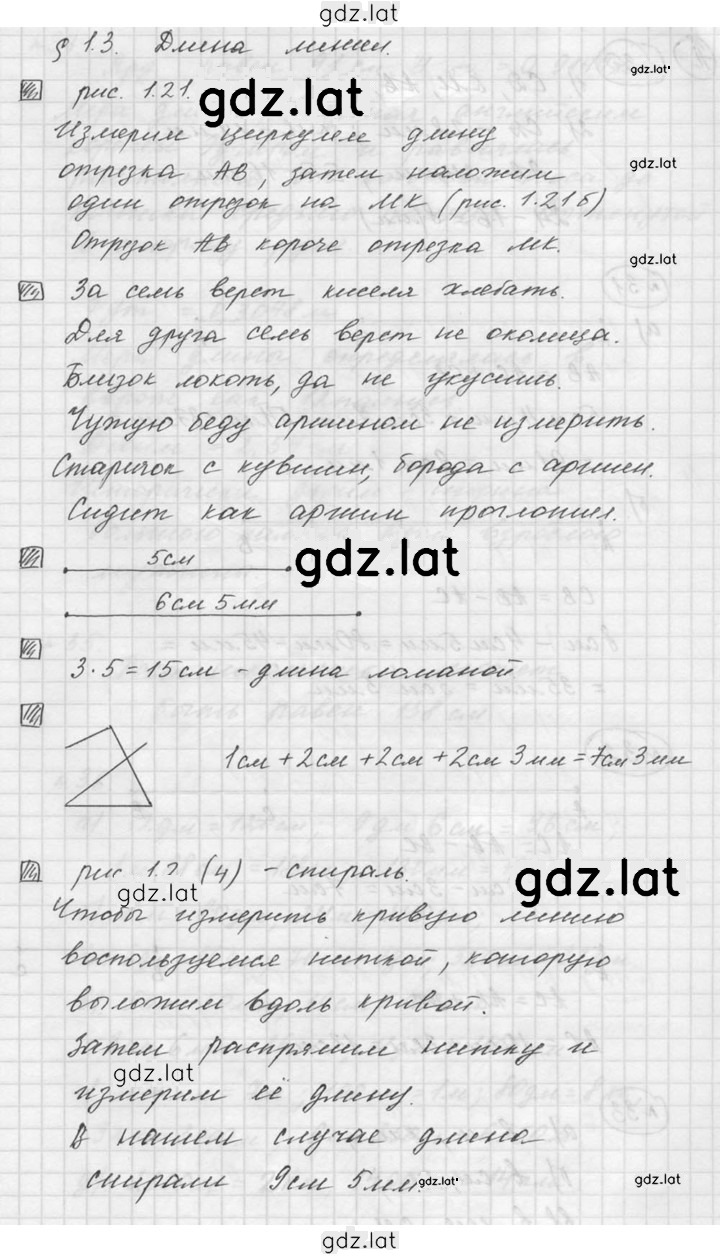 gdz.lat
§ 1.3. Длина линии.
gdz.lat
рис. 1.21.
gdz.lat
Измерим циркулем длину
gdz.lat
отрезка АВ, затем наложим
один отрезок на МК (рис. 1.21б)
Отрезок АВ короче отрезка МК.
gdz.lat
За семь верст киселя хлебать.
Для друга семь верст не околица.
Близок локоть, да не укусишь.
Чужую беду аршином не измерить.
Старичок с кувшин, борода с аршин.
Сидит как аршин проглотил.
gdz.lat
5см
6см 5мм
3·5=15см - длина ломаной
1см + 2см + 2см + 2см 3мм = 7см 3мм
рис 1.2 (4) - спираль.
gdz.lat
gdz.lat
Чтобы измерить кривую линию
воспользуемся ниткой, которую
выложим вдоль кривой.
Затем распрямим нитку и
gdz.lat
измерим её длину.
В нашем случае длина
спирали 9см 5мм.
gdz.lat
gdz.lat
gdz.lat